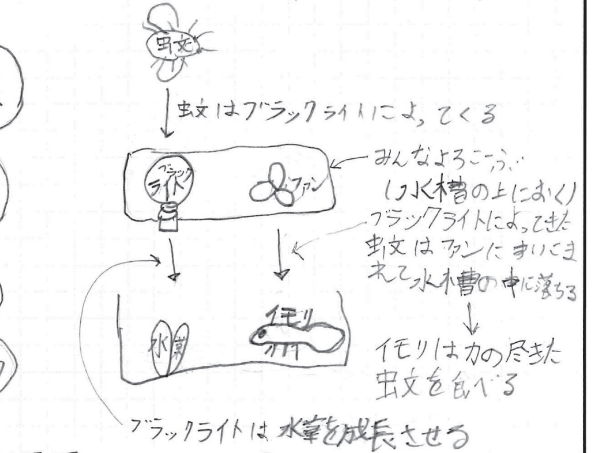 虫文
虫文はブラックライトによってくる
ブラック
ライト
ファン
みんなよろこ
(水槽の上におく)
ブラックライトによってきた
虫文はファンにすいこま
れて水槽の中に落ちる
水草
イモリ
イモリは力の尽きた
虫文を食べる
ブラックライトは水草を成長させる